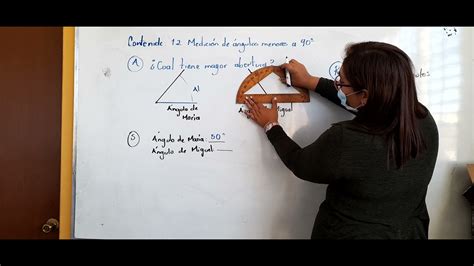 Contenido: 12 Medición de ángulos menores a 90°
A ¿Cual tiene mayor abertura?
A1
Ángulo de
María
S Ángulo de María 50°
Ángulo de Miguel